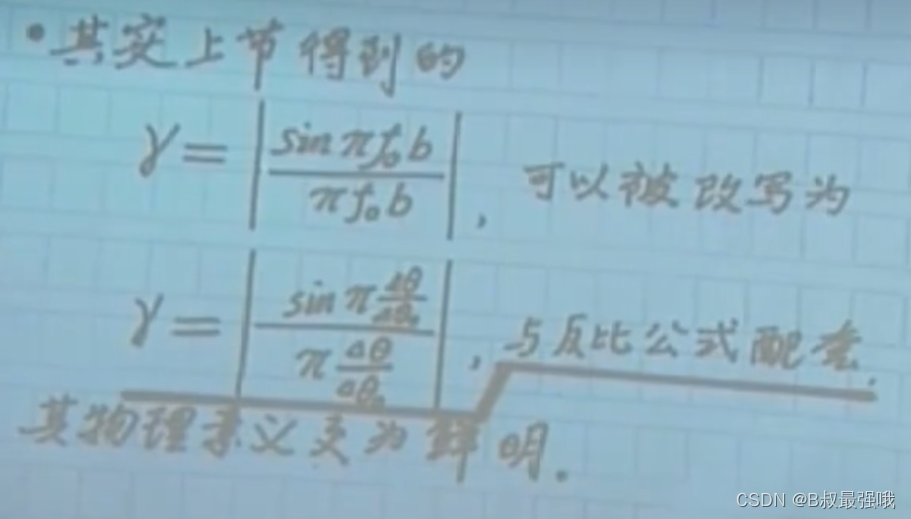 •其实上节得到的
γ = |sin πf₀b / πf₀b|, 可以被改写为
γ = |sin π Δθ/Δθ₀ / π Δθ/Δθ₀|, 与反比公式配套,
其物理意义更为鲜明.
CSDN @B叔最强哦